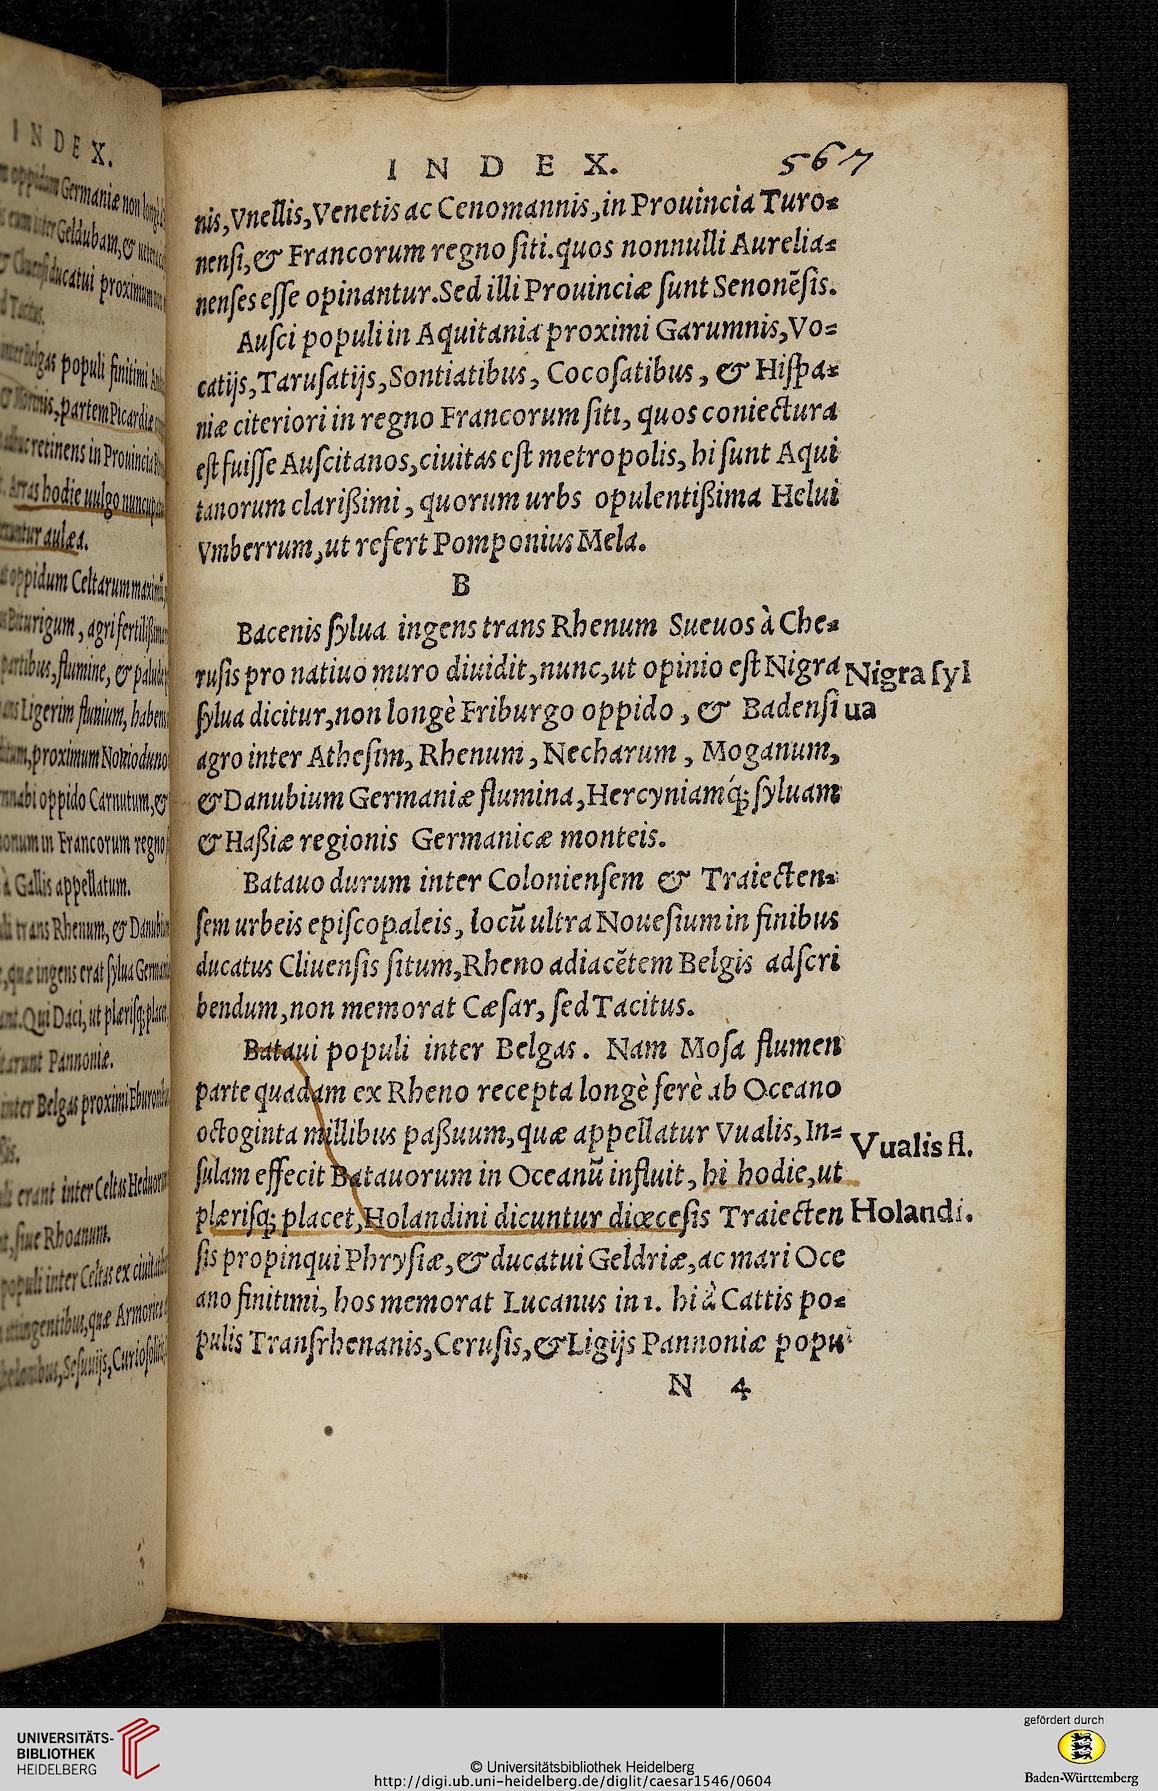 INDEX.
Germaniæ non
Geldubam, &
ducatui proximum
Tacitus.
populi finitimi
partem Picardiæ
retinens in Prouincia
Arras hodie uulgo nuncupat
aulæa.
oppidum Celtarum
agri fertilißi
partibus, flumine, & palud
Ligerim fluuium, habem
proximum Nouioduno
oppido Carnutum, &
in Francorum regno
à Gallis appellatum.
trans Rhenum, & Danubiu
quæ ingens erat sylua German
Qui Daci, ut plærisq; placet
Pannoniæ.
inter Belgas proximi Eburon
erant inter Celtas Heduorum
siue Rhoanum.
populi inter Celtas ex ciuitati
attingentibus, quæ Armoricæ
Sesuuijs, Curiosoliti
INDEX. 567
nis, Vnellis, Venetis ac Cenomannis, in Prouincia Turo⸗
nensi, & Francorum regno siti. quos nonnulli Aurelia⸗
nenses esse opinantur. Sed illi Prouinciæ sunt Senonẽsis.
Ausci populi in Aquitania proximi Garumnis, Vo⸗
catijs, Tarusatijs, Sontiatibus, Cocosatibus, & Hispa⸗
niæ citeriori in regno Francorum siti, quos coniectura
est fuisse Auscitanos, ciuitas est metropolis, hi sunt Aqui
tanorum clarißimi, quorum urbs opulentißima Helui
Vmberrum, ut refert Pomponius Mela.
B
Bacenis sylua ingens trans Rhenum Sueuos à Che⸗
rusis pro natiuo muro diuidit, nunc, ut opinio est Nigra
Nigra syl
sylua dicitur, non longè Friburgo oppido, & Badensi
ua
agro inter Athesim, Rhenum, Necharum, Moganum,
& Danubium Germaniæ flumina, Hercyniamq́; syluam
& Haßiæ regionis Germanicæ monteis.
Batauo durum inter Coloniensem & Traiecten⸗
sem urbeis episcopaleis, locũ ultra Nouesium in finibus
ducatus Cliuensis situm, Rheno adiacẽtem Belgis adscri
bendum, non memorat Cæsar, sed Tacitus.
Bataui populi inter Belgas. Nam Mosa flumen
parte quadam ex Rheno recepta longè ferè ab Oceano
octoginta millibus paßuum, quæ appellatur Vualis, In⸗
Vualis fl.
sulam effecit Batauorum in Oceanũ influit, hi hodie, ut
plærisq; placet, Holandini dicuntur diœcesis Traiecten
Holandi.
sis propinqui Phrysiæ, & ducatui Geldriæ, ac mari Oce
ano finitimi, hos memorat Lucanus in 1. hi à Cattis po⸗
pulis Transrhenanis, Cerusis, & Ligijs Pannoniæ popu
N 4
UNIVERSITÄTS-
BIBLIOTHEK
HEIDELBERG
© Universitätsbibliothek Heidelberg
http://digi.ub.uni-heidelberg.de/diglit/caesar1546/0604
gefördert durch
Baden-Württemberg